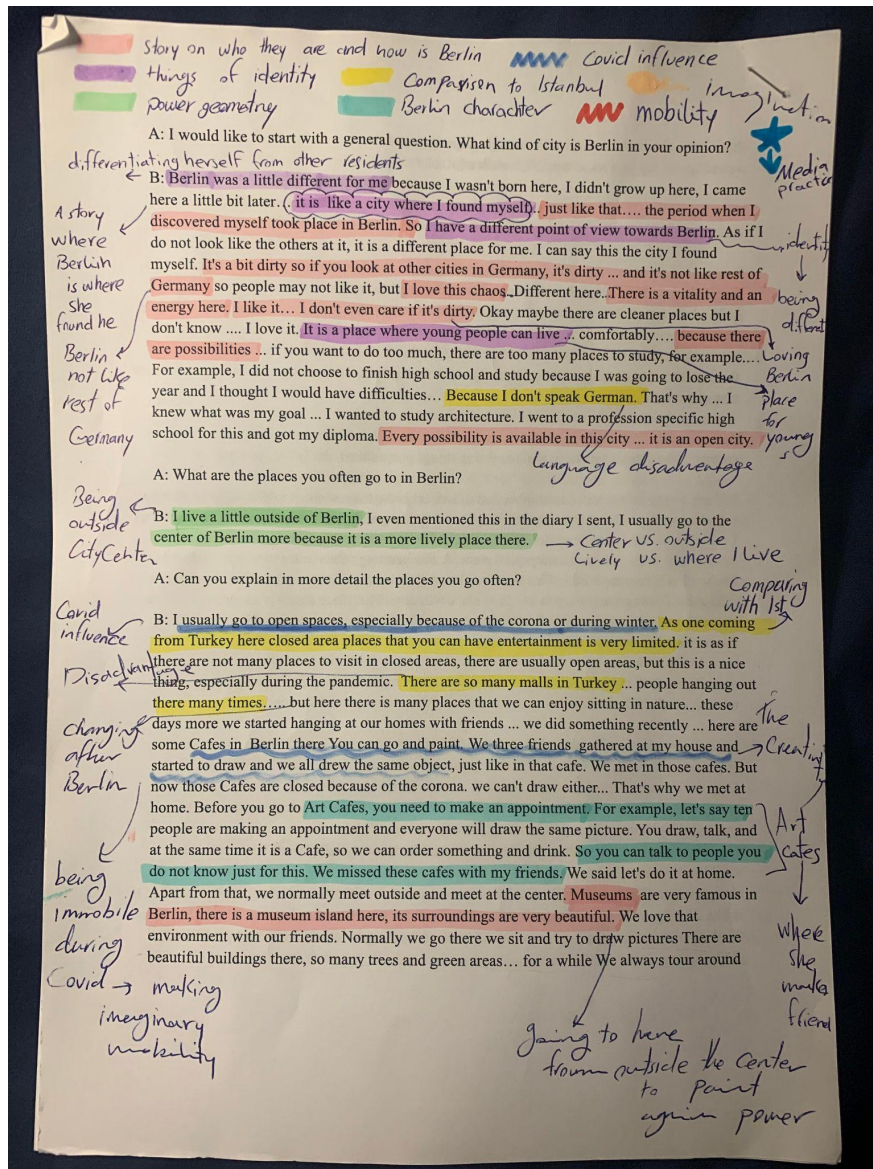 Story on who they are and how is Berlin
Covid influence
things of identity
Comparison to Istanbul
imagination
power geometry
Berlin charachter
mobility
Media practice
A: I would like to start with a general question. What kind of city is Berlin in your opinion?
differentiating herself from other residents
B: Berlin was a little different for me because I wasn't born here, I didn't grow up here, I came
here a little bit later. (. it is like a city where I found myself). just like that…. the period when I
discovered myself took place in Berlin. So I have a different point of view towards Berlin. As if I
do not look like the others at it, it is a different place for me. I can say this the city I found
myself. It's a bit dirty so if you look at other cities in Germany, it's dirty ... and it's not like rest of
Germany so people may not like it, but I love this chaos. Different here.. There is a vitality and an
energy here. I like it… I don't even care if it's dirty. Okay maybe there are cleaner places but I
don't know .... I love it. It is a place where young people can live ... comfortably…. because there
are possibilities ... if you want to do too much, there are too many places to study, for example….
For example, I did not choose to finish high school and study because I was going to lose the
year and I thought I would have difficulties… Because I don't speak German. That's why ... I
knew what was my goal ... I wanted to study architecture. I went to a profession specific high
school for this and got my diploma. Every possibility is available in this city ... it is an open city.
A story
where
Berlin
is where
she
found he
Berlin
not like
rest of
Germany
identity
being
different
Loving
Berlin
place
for
youngs
language disadvantage
A: What are the places you often go to in Berlin?
Being
outside
CityCenter
B: I live a little outside of Berlin, I even mentioned this in the diary I sent, I usually go to the
center of Berlin more because it is a more lively place there.
Center vs. outside
Lively vs. where I live
A: Can you explain in more detail the places you go often?
Comparing
with Ist
Covid
influence
B: I usually go to open spaces, especially because of the corona or during winter. As one coming
from Turkey here closed area places that you can have entertainment is very limited. it is as if
there are not many places to visit in closed areas, there are usually open areas, but this is a nice
thing, especially during the pandemic. There are so many malls in Turkey ... people hanging out
there many times..... but here there is many places that we can enjoy sitting in nature... these
days more we started hanging at our homes with friends ... we did something recently ... here are
some Cafes in Berlin there You can go and paint. We three friends gathered at my house and
started to draw and we all drew the same object, just like in that cafe. We met in those cafes. But
now those Cafes are closed because of the corona. we can't draw either... That's why we met at
home. Before you go to Art Cafes, you need to make an appointment. For example, let's say ten
people are making an appointment and everyone will draw the same picture. You draw, talk, and
at the same time it is a Cafe, so we can order something and drink. So you can talk to people you
do not know just for this. We missed these cafes with my friends. We said let's do it at home.
Apart from that, we normally meet outside and meet at the center. Museums are very famous in
Berlin, there is a museum island here, its surroundings are very beautiful. We love that
environment with our friends. Normally we go there we sit and try to draw pictures There are
beautiful buildings there, so many trees and green areas… for a while We always tour around
Disadvantage
changing
after
Berlin
being
immobile
during
Covid → making
imaginary
mobility
The
Creativity
Art
Cafes
where
she
friend
going to here
from outside the center
to paint
again power